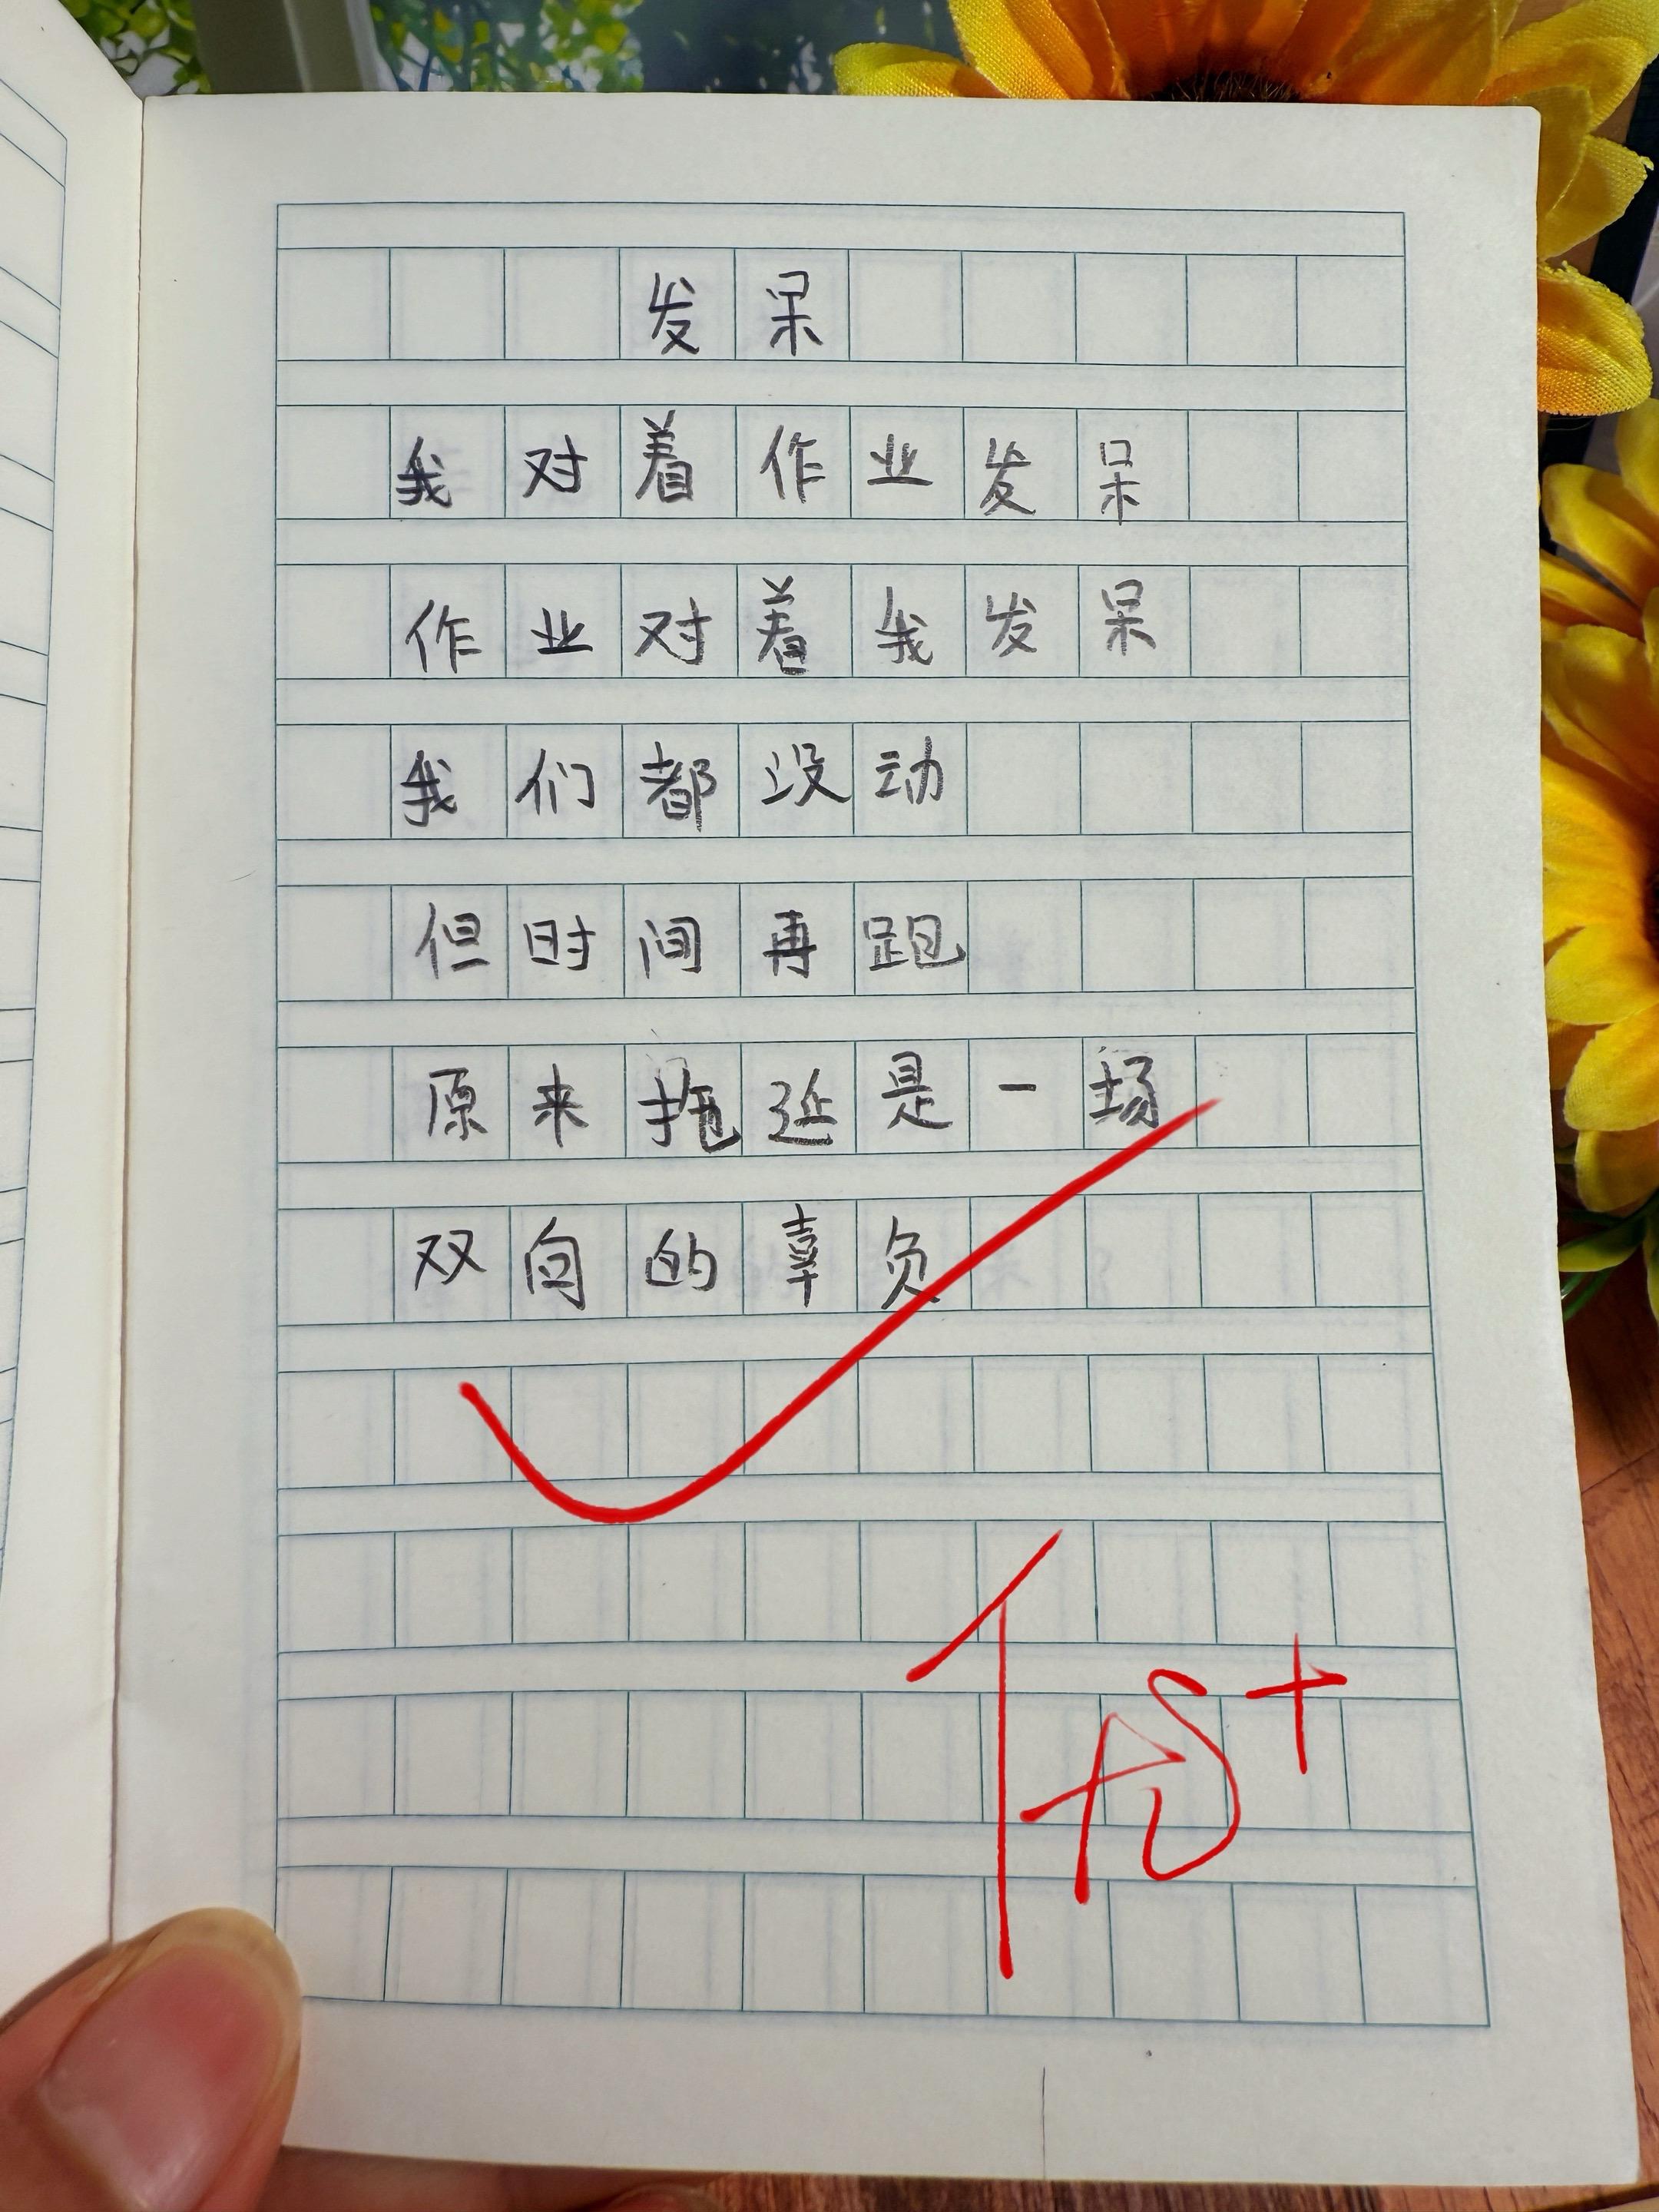 发呆
我对着作业发呆
作业对着我发呆
我们都没动
但时间再跑
原来拖延是一场
双向的辜负
优+